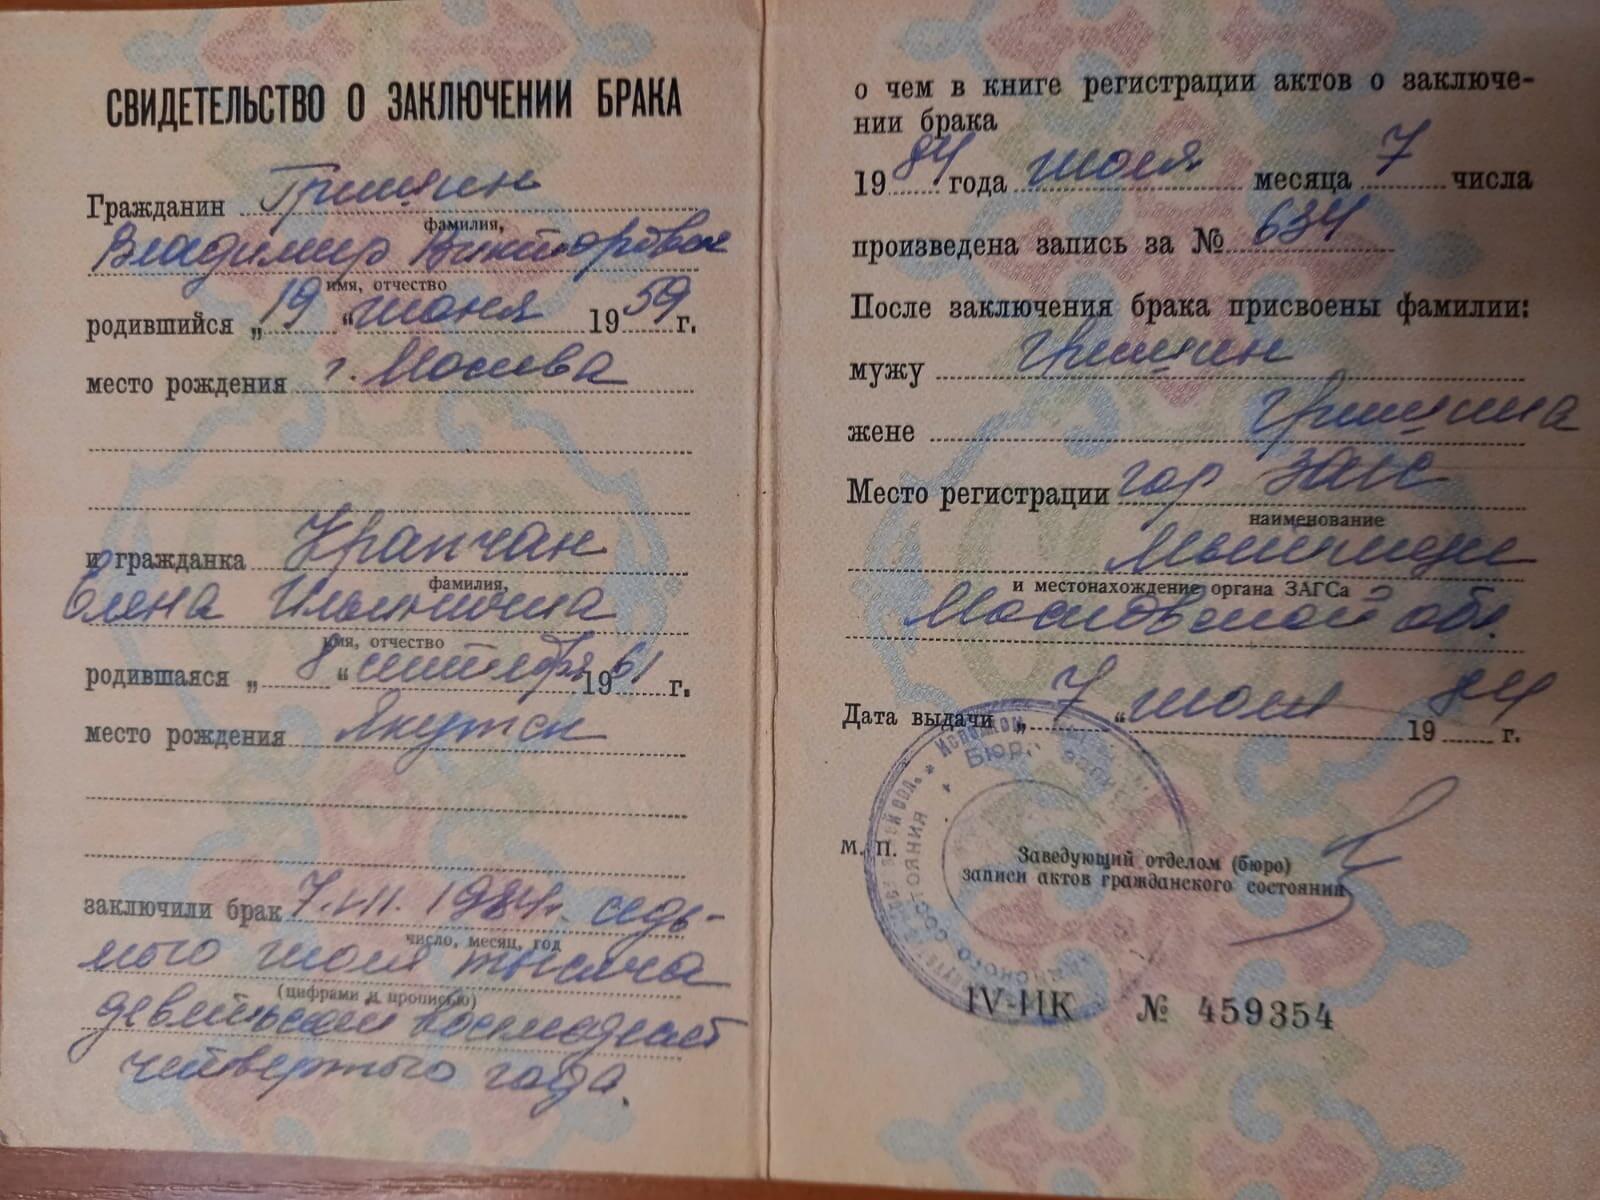 СВИДЕТЕЛЬСТВО О ЗАКЛЮЧЕНИИ БРАКА
Гражданин Гришин
фамилия,
Владимир Викторович
имя, отчество
родившийся „19“ июня 1959 г.
место рождения г. Москва
и гражданка Крапчан
фамилия,
Елена Ильинична
имя, отчество
родившаяся „8“ сентября 1961 г.
место рождения Якутск
заключили брак 7.VII.1984г. седь-
число, месяц, год
мого июля тысяча
(цифрами и прописью)
девятьсот восемьдесят
четвертого года.
о чем в книге регистрации актов о заключе-
нии брака
1984 года июля месяца 7 числа
произведена запись за № 634
После заключения брака присвоены фамилии:
мужу Гришин
жене Гришина
Место регистрации гор ЗАГС
наименование
Мытищи
и местонахождение органа ЗАГСа
Московской обл.
Дата выдачи „7“ июля 1984 г.
М. П.
Заведующий отделом (бюро)
записи актов гражданского состояния
IV-ИК № 459354